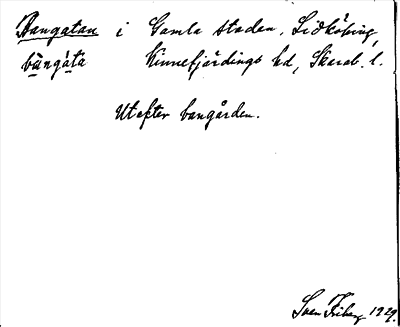 Bangatan i Gamla staden, Lidköping,
bàngáta Kinnefjärdings hd, Skarab. l.
Utefter bangården.
Sven Friberg 1929.